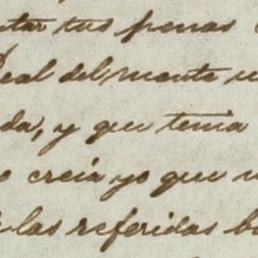 tus penas
Real del monte
da, y que tenia
creia yo que
las referidas